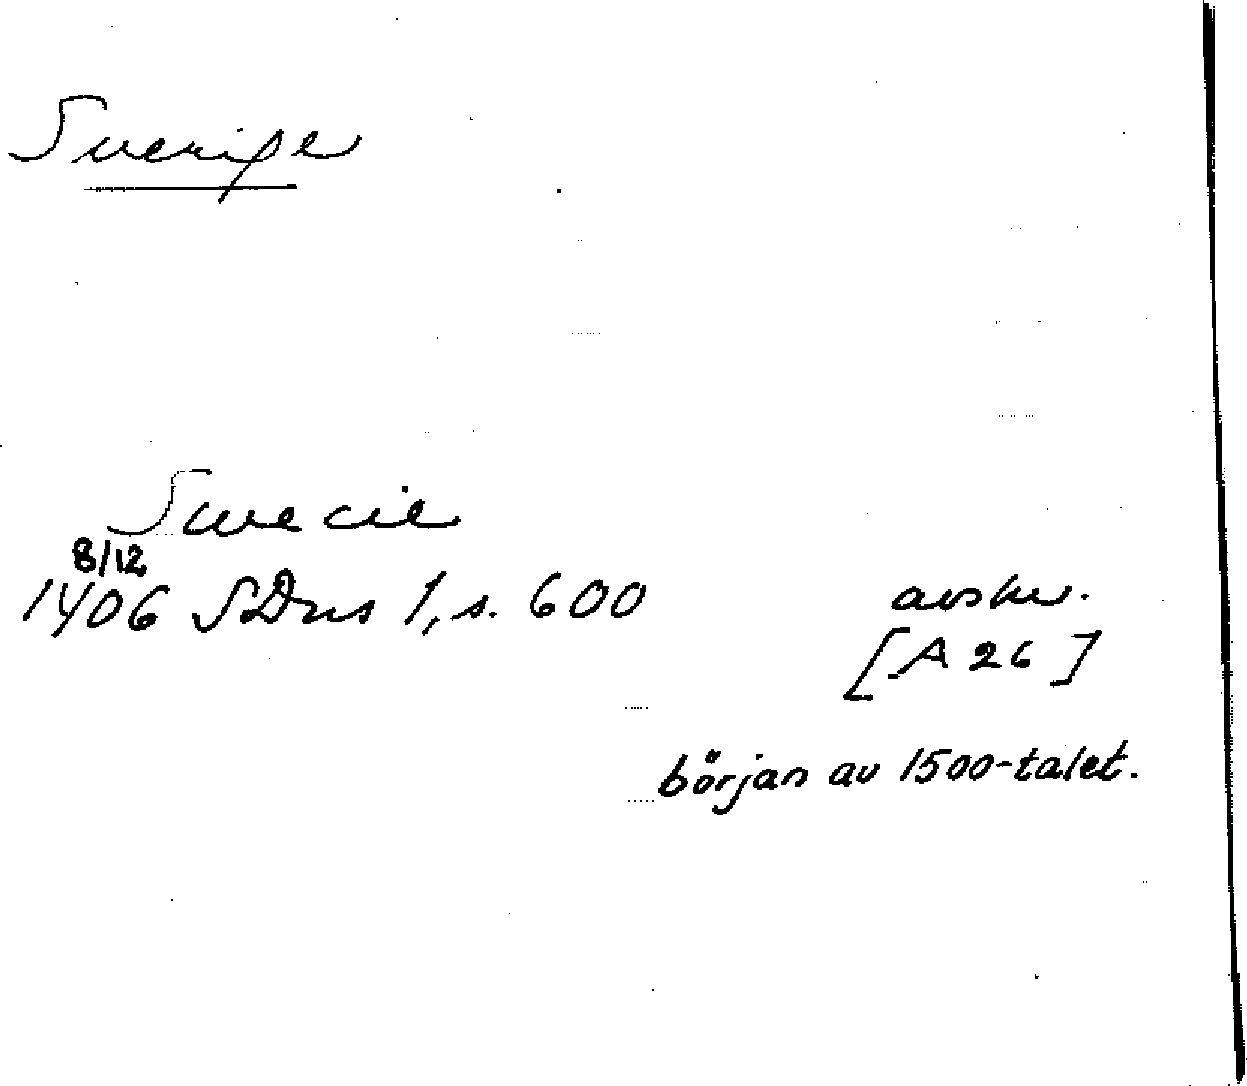 Sverige
Swecie
8/12
1406 SDns 1, s. 600 avskr.
[A 26]
början av 1500-talet.